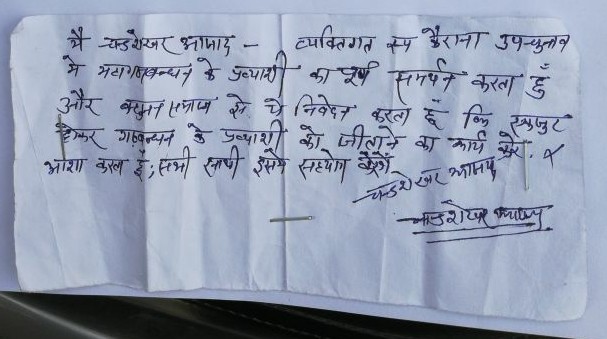 मै चन्द्रशेखर आजाद - व्यक्तिगत रूप कैराना उप-चुनाव
मे महागठबन्धन के प्रत्याशी का पूर्ण समर्थन करता हुँ
और बहुजन समाज से ये निवेदन करता हुँ कि एकजुट
होकर गठबन्धन के प्रत्याशी को जीताने का कार्य करे.
आशा करता हुँ, सभी साथी इसमे सहयोग करेगें
चन्द्रशेखर आजाद
चन्द्रशेखर आजाद